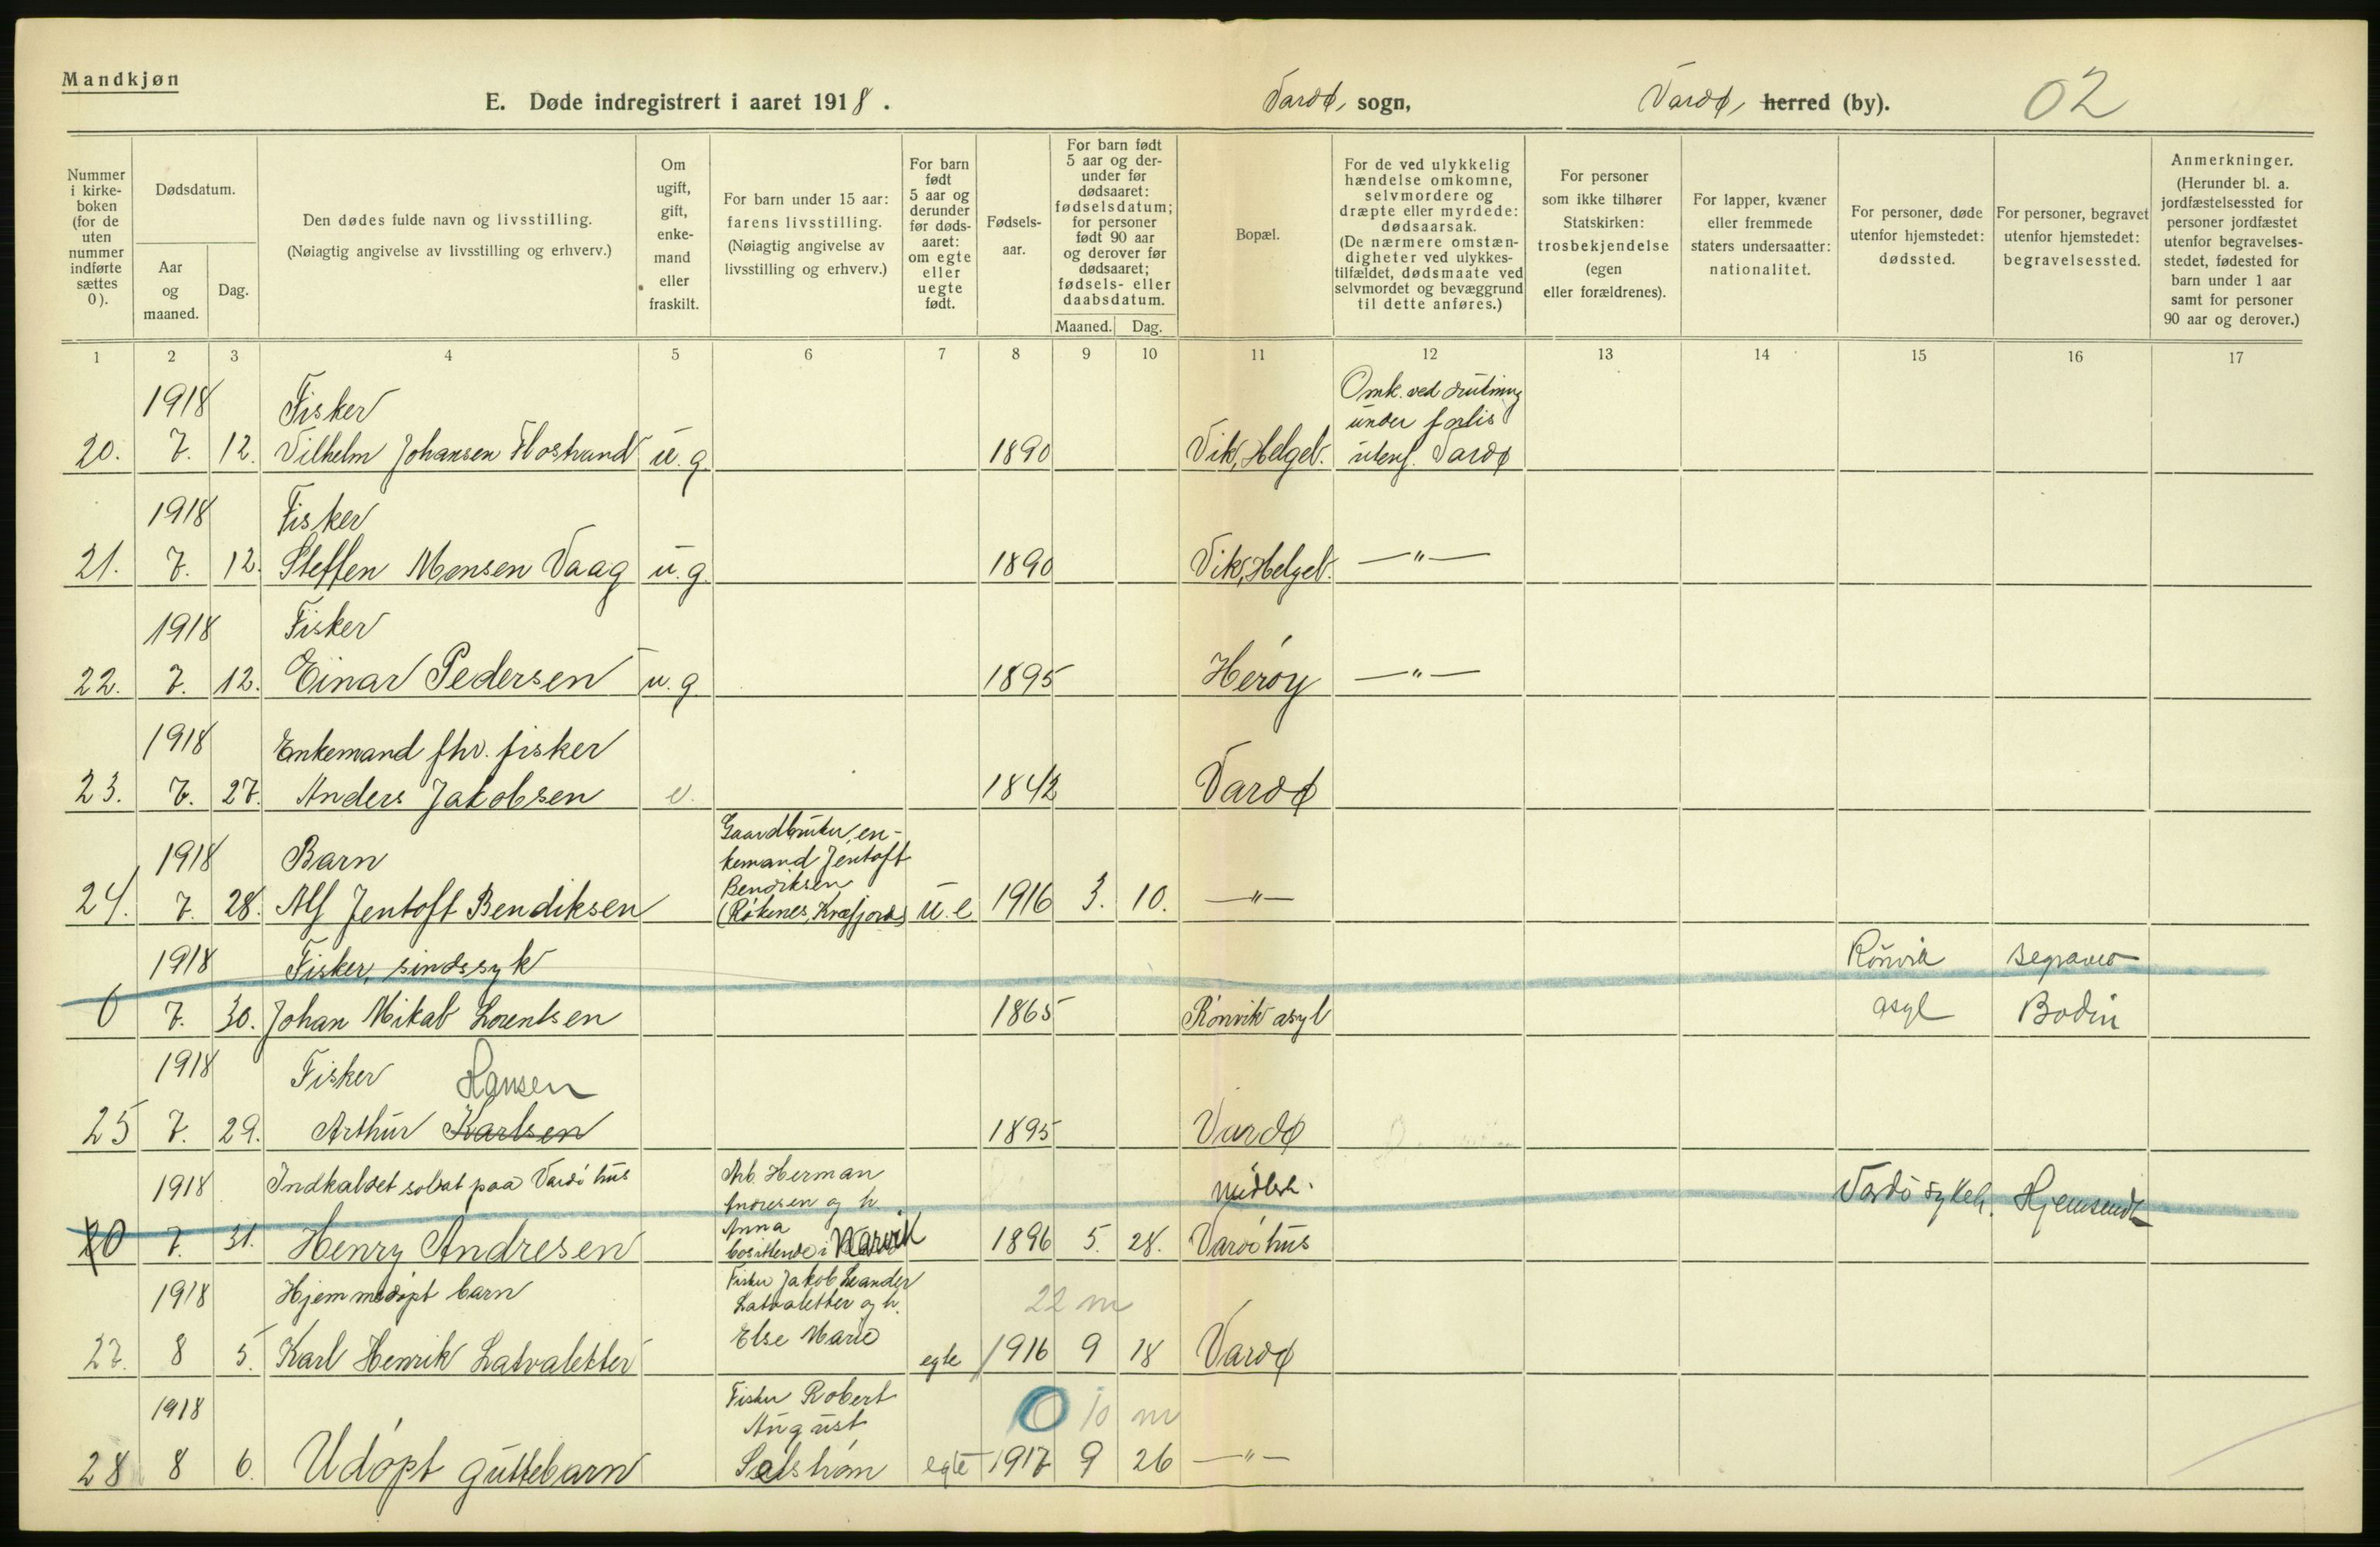 Mandkjøn
E. Døde indregistrert i aaret 1918.
Vardø, sogn,
Vardø, herred (by).
02
Nummer i kirke-boken (for de uten nummer indførte sættes 0).
Dødsdatum.
Aar og maaned.
Dag.
Den dødes fulde navn og livsstilling.
(Nøiagtig angivelse av livsstilling og erhverv.)
Om ugift, gift, enke-mand eller fraskilt.
For barn under 15 aar: farens livsstilling. (Nøiagtig angivelse av livsstilling og erhverv.)
For barn født 5 aar og derunder før døds-aaret: om egte eller uegte født.
Fødsels-aar.
For barn født 5 aar og der-under før dødsaaret: fødselsdatum; for personer født 90 aar og derover før dødsaaret; fødsels- eller daabsdatum.
Maaned.
Dag.
Bopæl.
For de ved ulykkelig hændelse omkomne, selvmordere og dræpte eller myrdede: dødsaarsak. (De nærmere omstæn-digheter ved ulykkes-tilfældet, dødsmaate ved selvmordet og bevæggrund til dette anføres.)
For personer som ikke tilhører Statskirken: trosbekjendelse (egen eller forældrenes).
For lapper, kvæner eller fremmede staters undersaatter: nationalitet.
For personer, døde utenfor hjemstedet: dødssted.
For personer, begravet utenfor hjemstedet: begravelsessted.
Anmerkninger. (Herunder bl. a. jordfæstelsessted for personer jordfæstet utenfor begravelses-stedet, fødested for barn under 1 aar samt for personer 90 aar og derover.)
1 2 3 4 5 6 7 8 9 10 11 12 13 14 15 16 17
1918 Fisker Omk. ved
under forlis
20. 7. 12. Vilhelm Johansen Flostrand u. g. 1890 Vik, Helgel. utenf. Vardø
1918 Fisker
21. 7. 12. Steffen Monsen Vaag u. g. 1890 Vik, Helgel. —"—
1918 Fisker
22. 7. 12. Einar Pedersen u. g. 1895 Herøy —"—
1918 Enkemand fhv. fisker
23. 7. 27. Anders Jakobsen e. 1842 Vardø
Gaardbruker, en-
1918 Barn kemand Jentoft
Bendiksen
24. 7. 28. Alf Jentoft Bendiksen (Røkenes, Kvæfjord) u. e 1916 3. 10. —"—
1918 Fisker, sindssyk Rønvik begravet
0 7. 30. Johan Mikal Lorentsen 1865 Rønvik asyl asyl Bodin
1918 Fisker Hansen
25 7. 29. Arthur Karlsen 1895 Vardø
1918 Indkaldet soldat paa Vardøhus Arb. Herman midlert. Vardø sykeh. Hjemsendt
Andresen og h.
Anna
20 7. 31. Henry Andresen bosittende i Narvik 1896 5. 28. Vardøhus
1918 Hjemmedøpt barn Fisker Jakob Leander
Latvaletter og h. 22 m
Else Marie
27. 8 5. Karl Henrik Latvaletter egte 1916 9 18 Vardø
1918 Fisker Robert 0 10 m
August
28 8 6. Udøpt guttebarn Selstrøm egte 1917 9 26 —"—